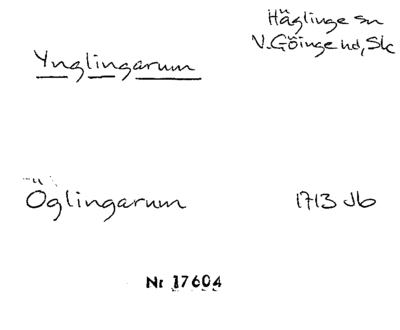 Häglinge sn
V. Göinge hd, Sk
Ynglingarum
Öglingarum 1713 Jb
Nr 17604